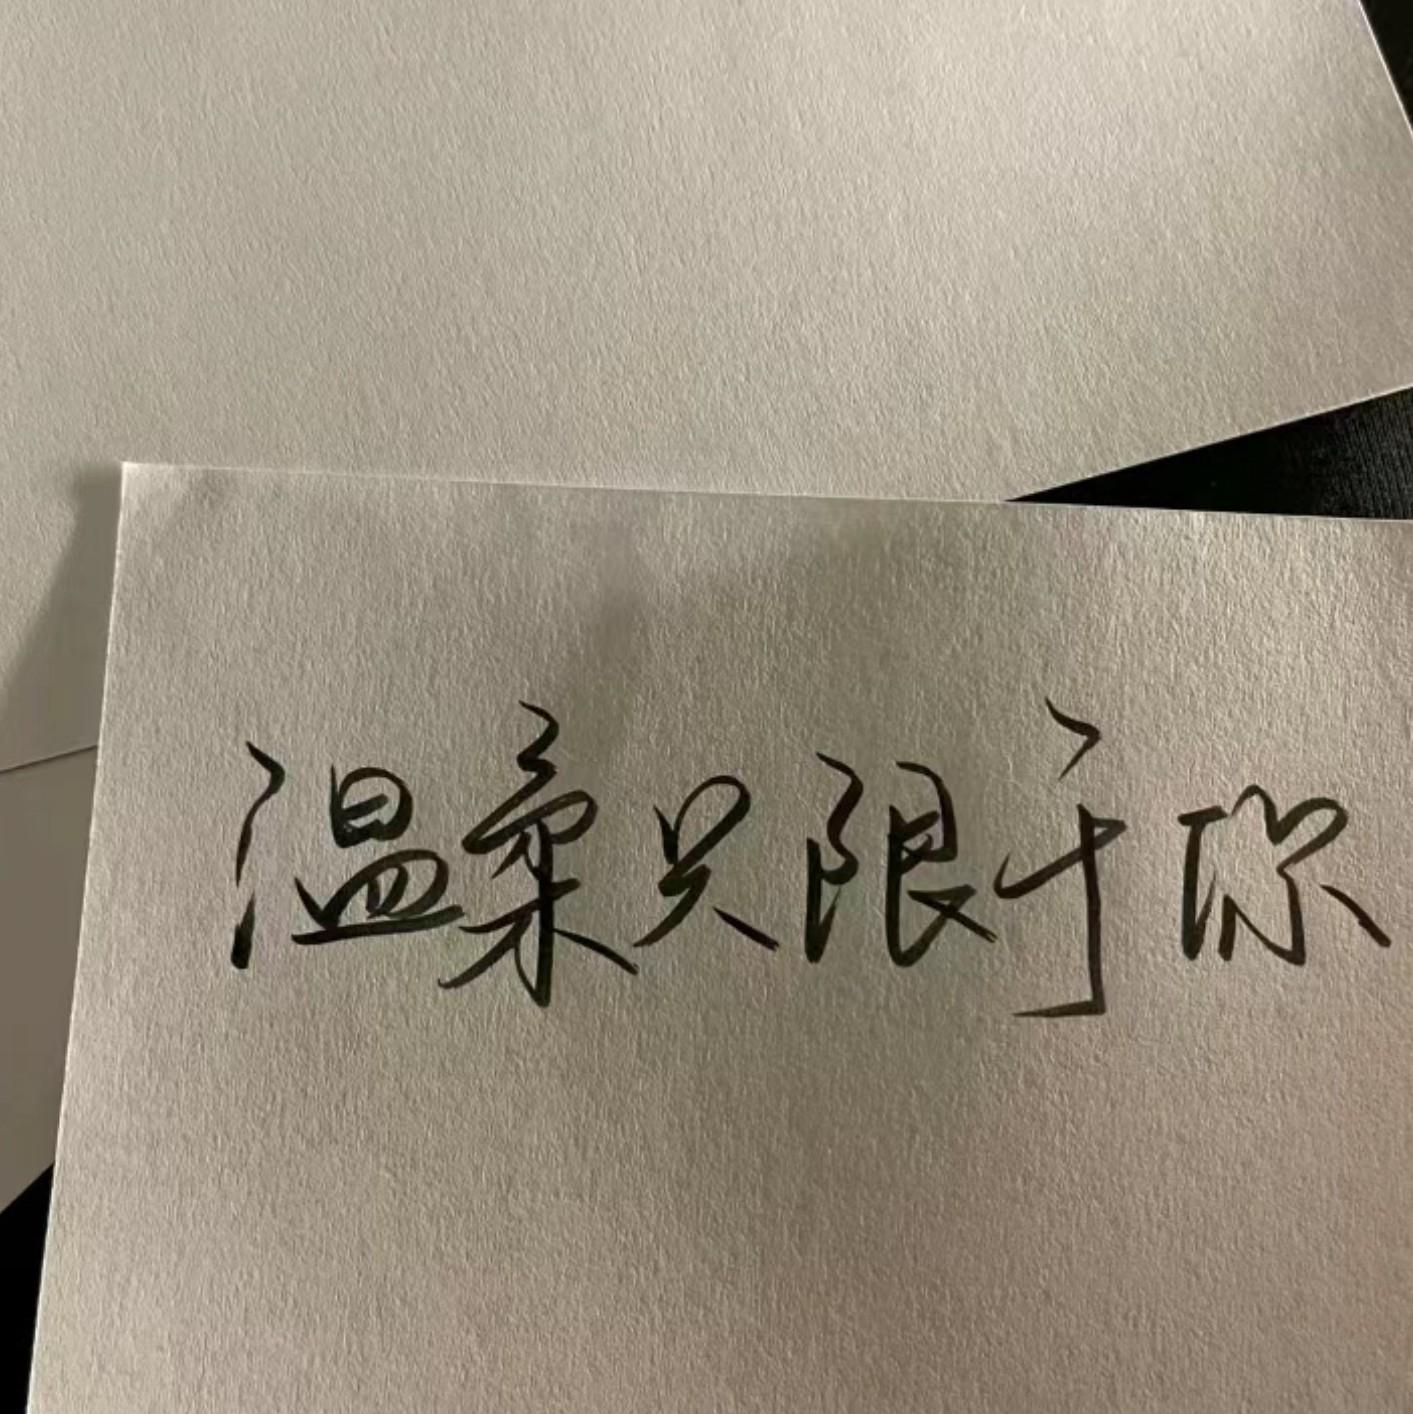 温柔只限于你